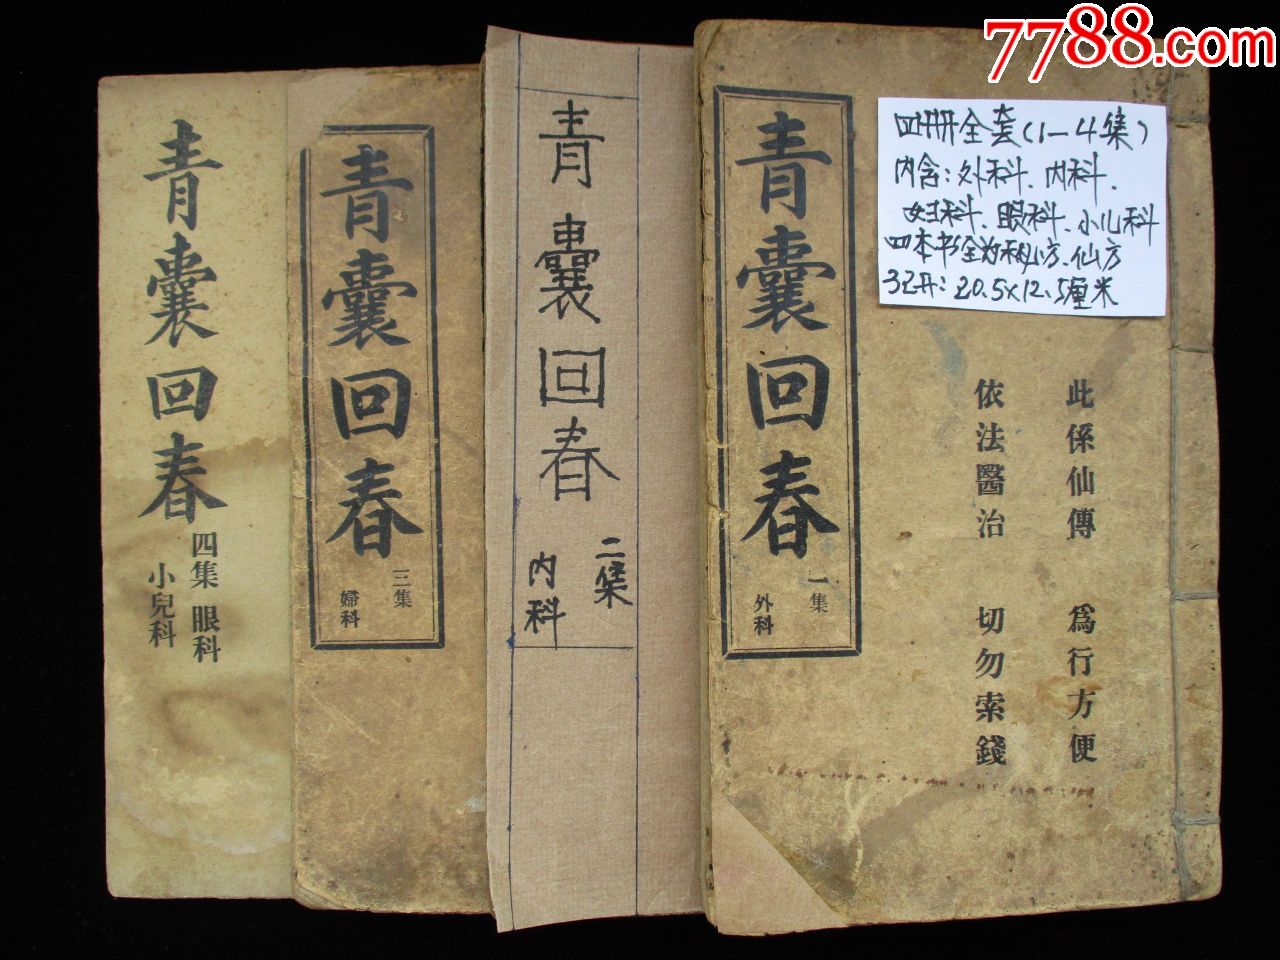 7788.com
四册全套(1-4集)
内含:外科、内科、
妇科、眼科、小儿科
四本书全为秘方、仙方
32开:20.5×12.5厘米
此係仙傳 為行方便
依法醫治 切勿索錢
青囊回春
一集
外科
青囊回春
二集
内科
青囊回春
三集
婦科
青囊回春
四集 眼科
小兒科